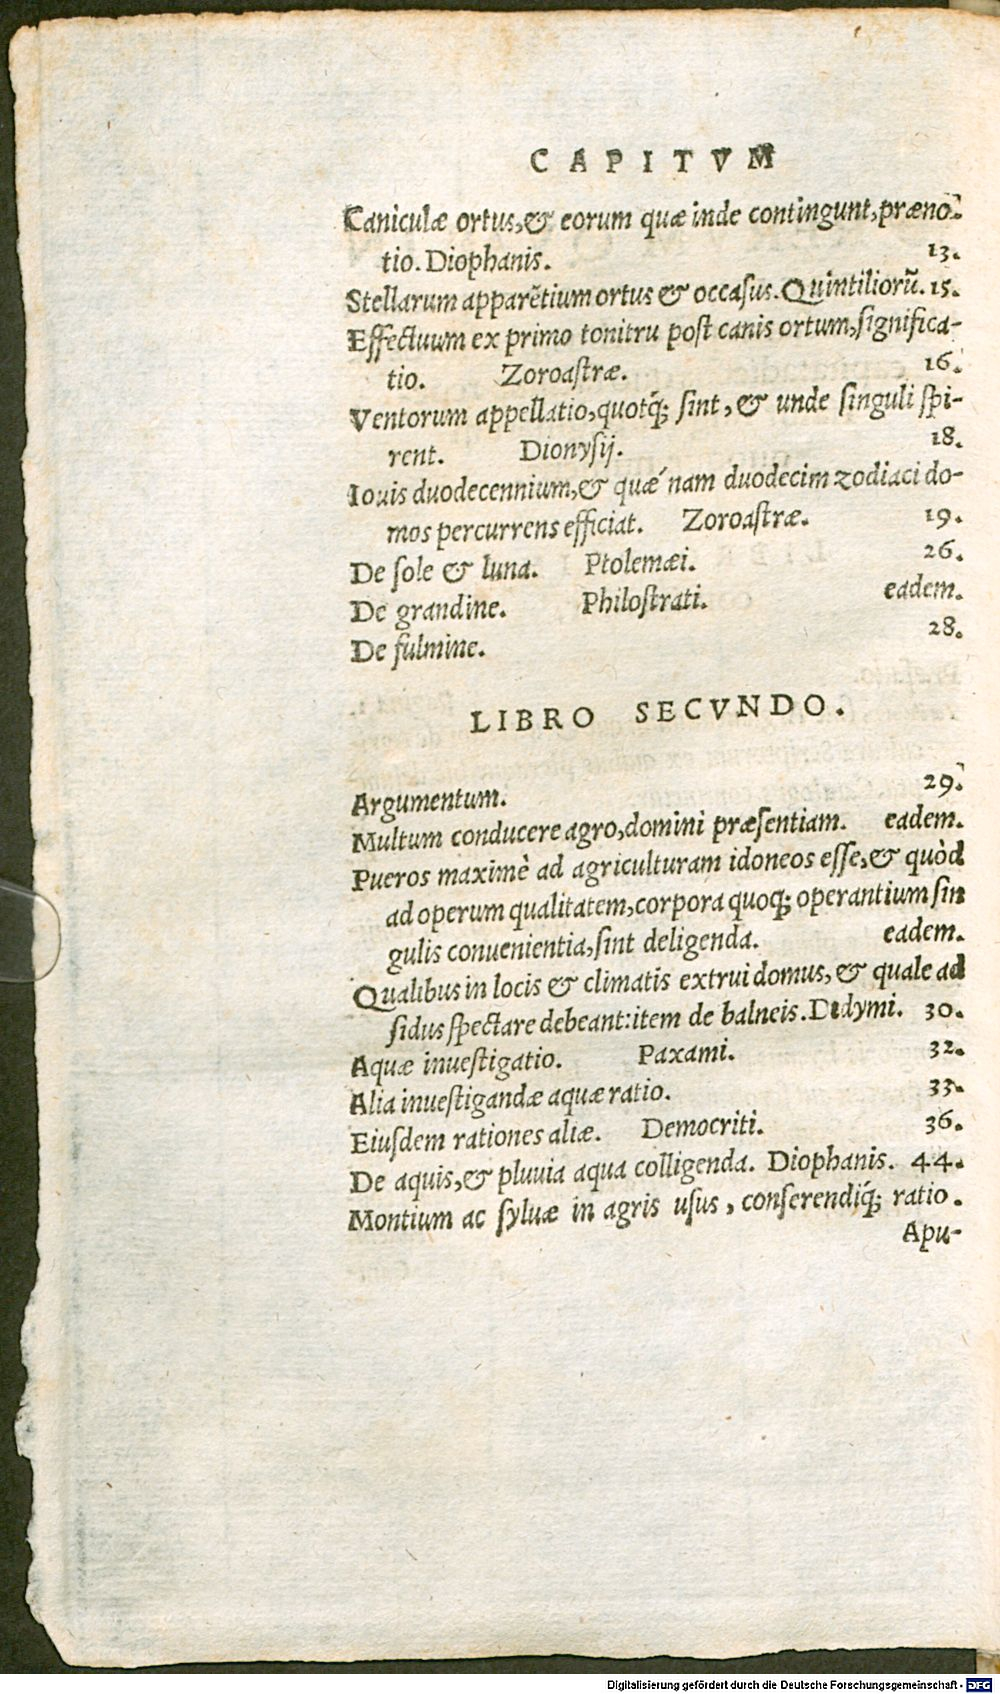 CAPITVM
Caniculæ ortus, & eorum quæ inde contingunt, præno-
tio. Diophanis. 13.
Stellarum apparẽtium ortus & occasus. Quintiliorũ. 15.
Effectuum ex primo tonitru post canis ortum, significa-
tio. Zoroastræ. 16.
Ventorum appellatio, quotq́; sint, & unde singuli spi-
rent. Dionysij. 18.
Iouis duodecennium, & quæ´nam duodecim zodiaci do-
mos percurrens efficiat. Zoroastræ. 19.
De sole & luna. Ptolemæi. 26.
De grandine. Philostrati. eadem.
De fulmine. 28.
LIBRO SECVNDO.
Argumentum. 29.
Multum conducere agro, domini præsentiam. eadem.
Pueros maximè ad agriculturam idoneos esse, & quòd
ad operum qualitatem, corpora quoq; operantium sin
gulis conuenientia, sint deligenda. eadem.
Qualibus in locis & climatis extrui domus, & quale ad
sidus spectare debeant: item de balneis. Didymi. 30.
Aquæ inuestigatio. Paxami. 32.
Alia inuestigandæ aquæ ratio. 33.
Eiusdem rationes aliæ. Democriti. 36.
De aquis, & pluuia aqua colligenda. Diophanis. 44.
Montium ac syluæ in agris usus, conserendiq́; ratio.
Apu-
Digitalisierung gefördert durch die Deutsche Forschungsgemeinschaft - DFG